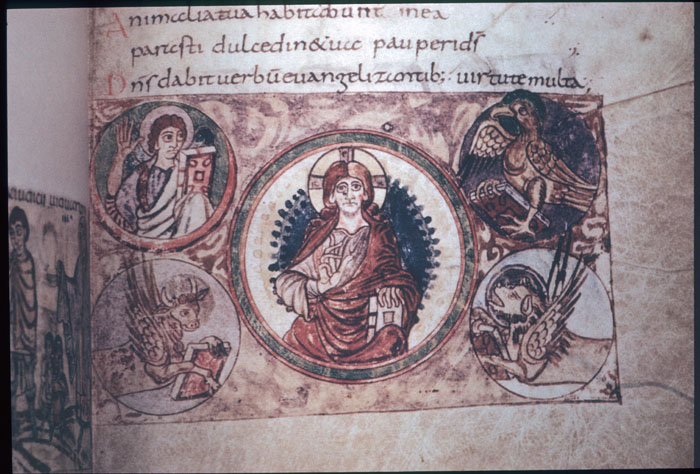 Animalia tua habitabunt in ea
parasti dulcedin&ua pauperi d̄s
Dn̄s dabit uerbū euangelizantib; uirtute multa;